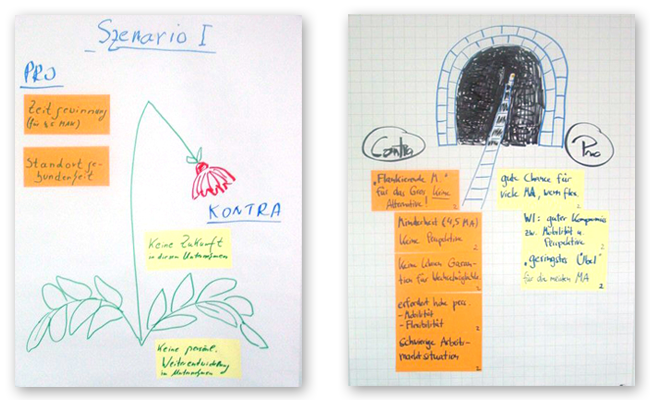 Szenario I
PRO
Zeitgewinnung
Standort ge-
bundenheit
KONTRA
Keine Zukunft
in diesem Unternehmen
Keine persönl.
Weiterentwicklung
im Unternehmen
Contra
Pro
"Flankierende M."
für das Gros keine
Alternative!
Minderheit (4,5 MA)
Keine Perspektive
2
2
erfordert hohe pers.
- Mobilität
- Flexibilität
2
schwierige Arbeits-
marktsituation
2
gute Chance für
viele MA, wenn flex.
2
WI: guter Kompromiss
zw. Mobilität u.
Perspektive
2
"geringstes Übel"
für die meisten MA
2